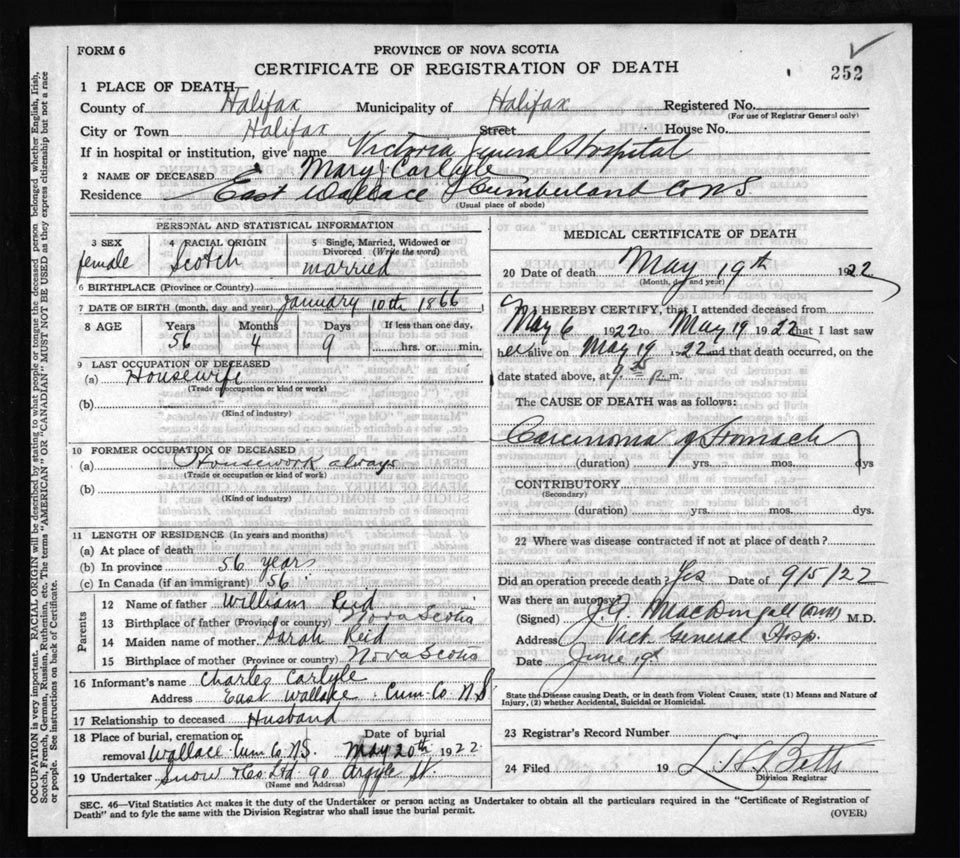 FORM 6
PROVINCE OF NOVA SCOTIA
CERTIFICATE OF REGISTRATION OF DEATH
252
1 PLACE OF DEATH
County of Halifax Municipality of Halifax Registered No.
(For use of Registrar General only)
City or Town Halifax Street House No.
If in hospital or institution, give name Victoria General Hospital
2 NAME OF DECEASED Mary J Carlyle
Residence East Wallace Cumberland Co N S
(Usual place of abode)
PERSONAL AND STATISTICAL INFORMATION
3 SEX female
4 RACIAL ORIGIN Scotch
5 Single, Married, Widowed or Divorced (Write the word) married
6 BIRTHPLACE (Province or Country)
7 DATE OF BIRTH (month, day and year) January 10th 1866
8 AGE Years Months Days If less than one day,
56 4 9 hrs. or min.
9 LAST OCCUPATION OF DECEASED
(a) Housewife
(Trade or occupation or kind or work)
(b)
(Kind of industry)
10 FORMER OCCUPATION OF DECEASED
(a) Housework always
(Trade or occupation or kind or work)
(b)
(Kind of industry)
11 LENGTH OF RESIDENCE (In years and months)
(a) At place of death
(b) In province 56 years
(c) In Canada (if an immigrant) 56
Parents
12 Name of father William Reid
13 Birthplace of father (Province or country) Nova Scotia
14 Maiden name of mother Sarah Reid
15 Birthplace of mother (Province or country) Nova Scotia
16 Informant's name Charles Carlyle
Address East Wallace Cum. Co N.S
17 Relationship to deceased Husband
18 Place of burial, cremation or Date of burial
removal Wallace Cum Co N.S. May 20th 1922
19 Undertaker Snow & Co Ltd. 90 Argyle St.
(Name and Address)
MEDICAL CERTIFICATE OF DEATH
20 Date of death May 19th 1922
(Month, day and year)
I HEREBY CERTIFY, that I attended deceased from
May 6 1922 to May 19 1922 that I last saw
her alive on May 19 1922 and that death occurred, on the
date stated above, at 9 p.m.
The CAUSE OF DEATH was as follows:
Carcinoma of Stomach
(duration) yrs. mos. dys
CONTRIBUTORY
(Secondary)
(duration) yrs. mos. dys.
22 Where was disease contracted if not at place of death?
Did an operation precede death? Yes Date of 9/5/22
Was there an autopsy?
(Signed) J.G. MacDougall M.D.
Address Vict General Hosp.
Date June 19
State the Disease causing Death, or in death from Violent Causes, state (1) Means and Nature of
Injury, (2) whether Accidental, Suicidal or Homicidal.
23 Registrar's Record Number
24 Filed 19 Betts
Division Registrar
SEC. 46—Vital Statistics Act makes it the duty of the Undertaker or person acting as Undertaker to obtain all the particulars required in the "Certificate of Registration of
Death" and to fyle the same with the Division Registrar who shall issue the burial permit.
(OVER)
OCCUPATION is very important. RACIAL ORIGIN will be described by stating to what people or tongue the deceased person belonged whether English, Irish,
Scotch, French, German, Russian, Ruthenian, etc. The terms "AMERICAN" OR "CANADIAN" MUST NOT BE USED as they express citizenship but not a race
or people. See instructions on back of Certificate.